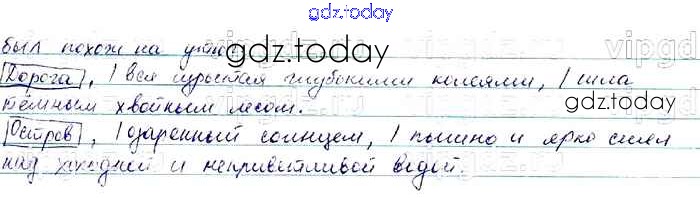 gdz.today
был похож на
gdz.today
Дорога, | вся изрытая глубокими колеями, | шла
тёмным хвойным лесом.
gdz.today
Остров, | озаренный солнцем, | пышно и ярко сиял
над холодной и неприветливой водой.